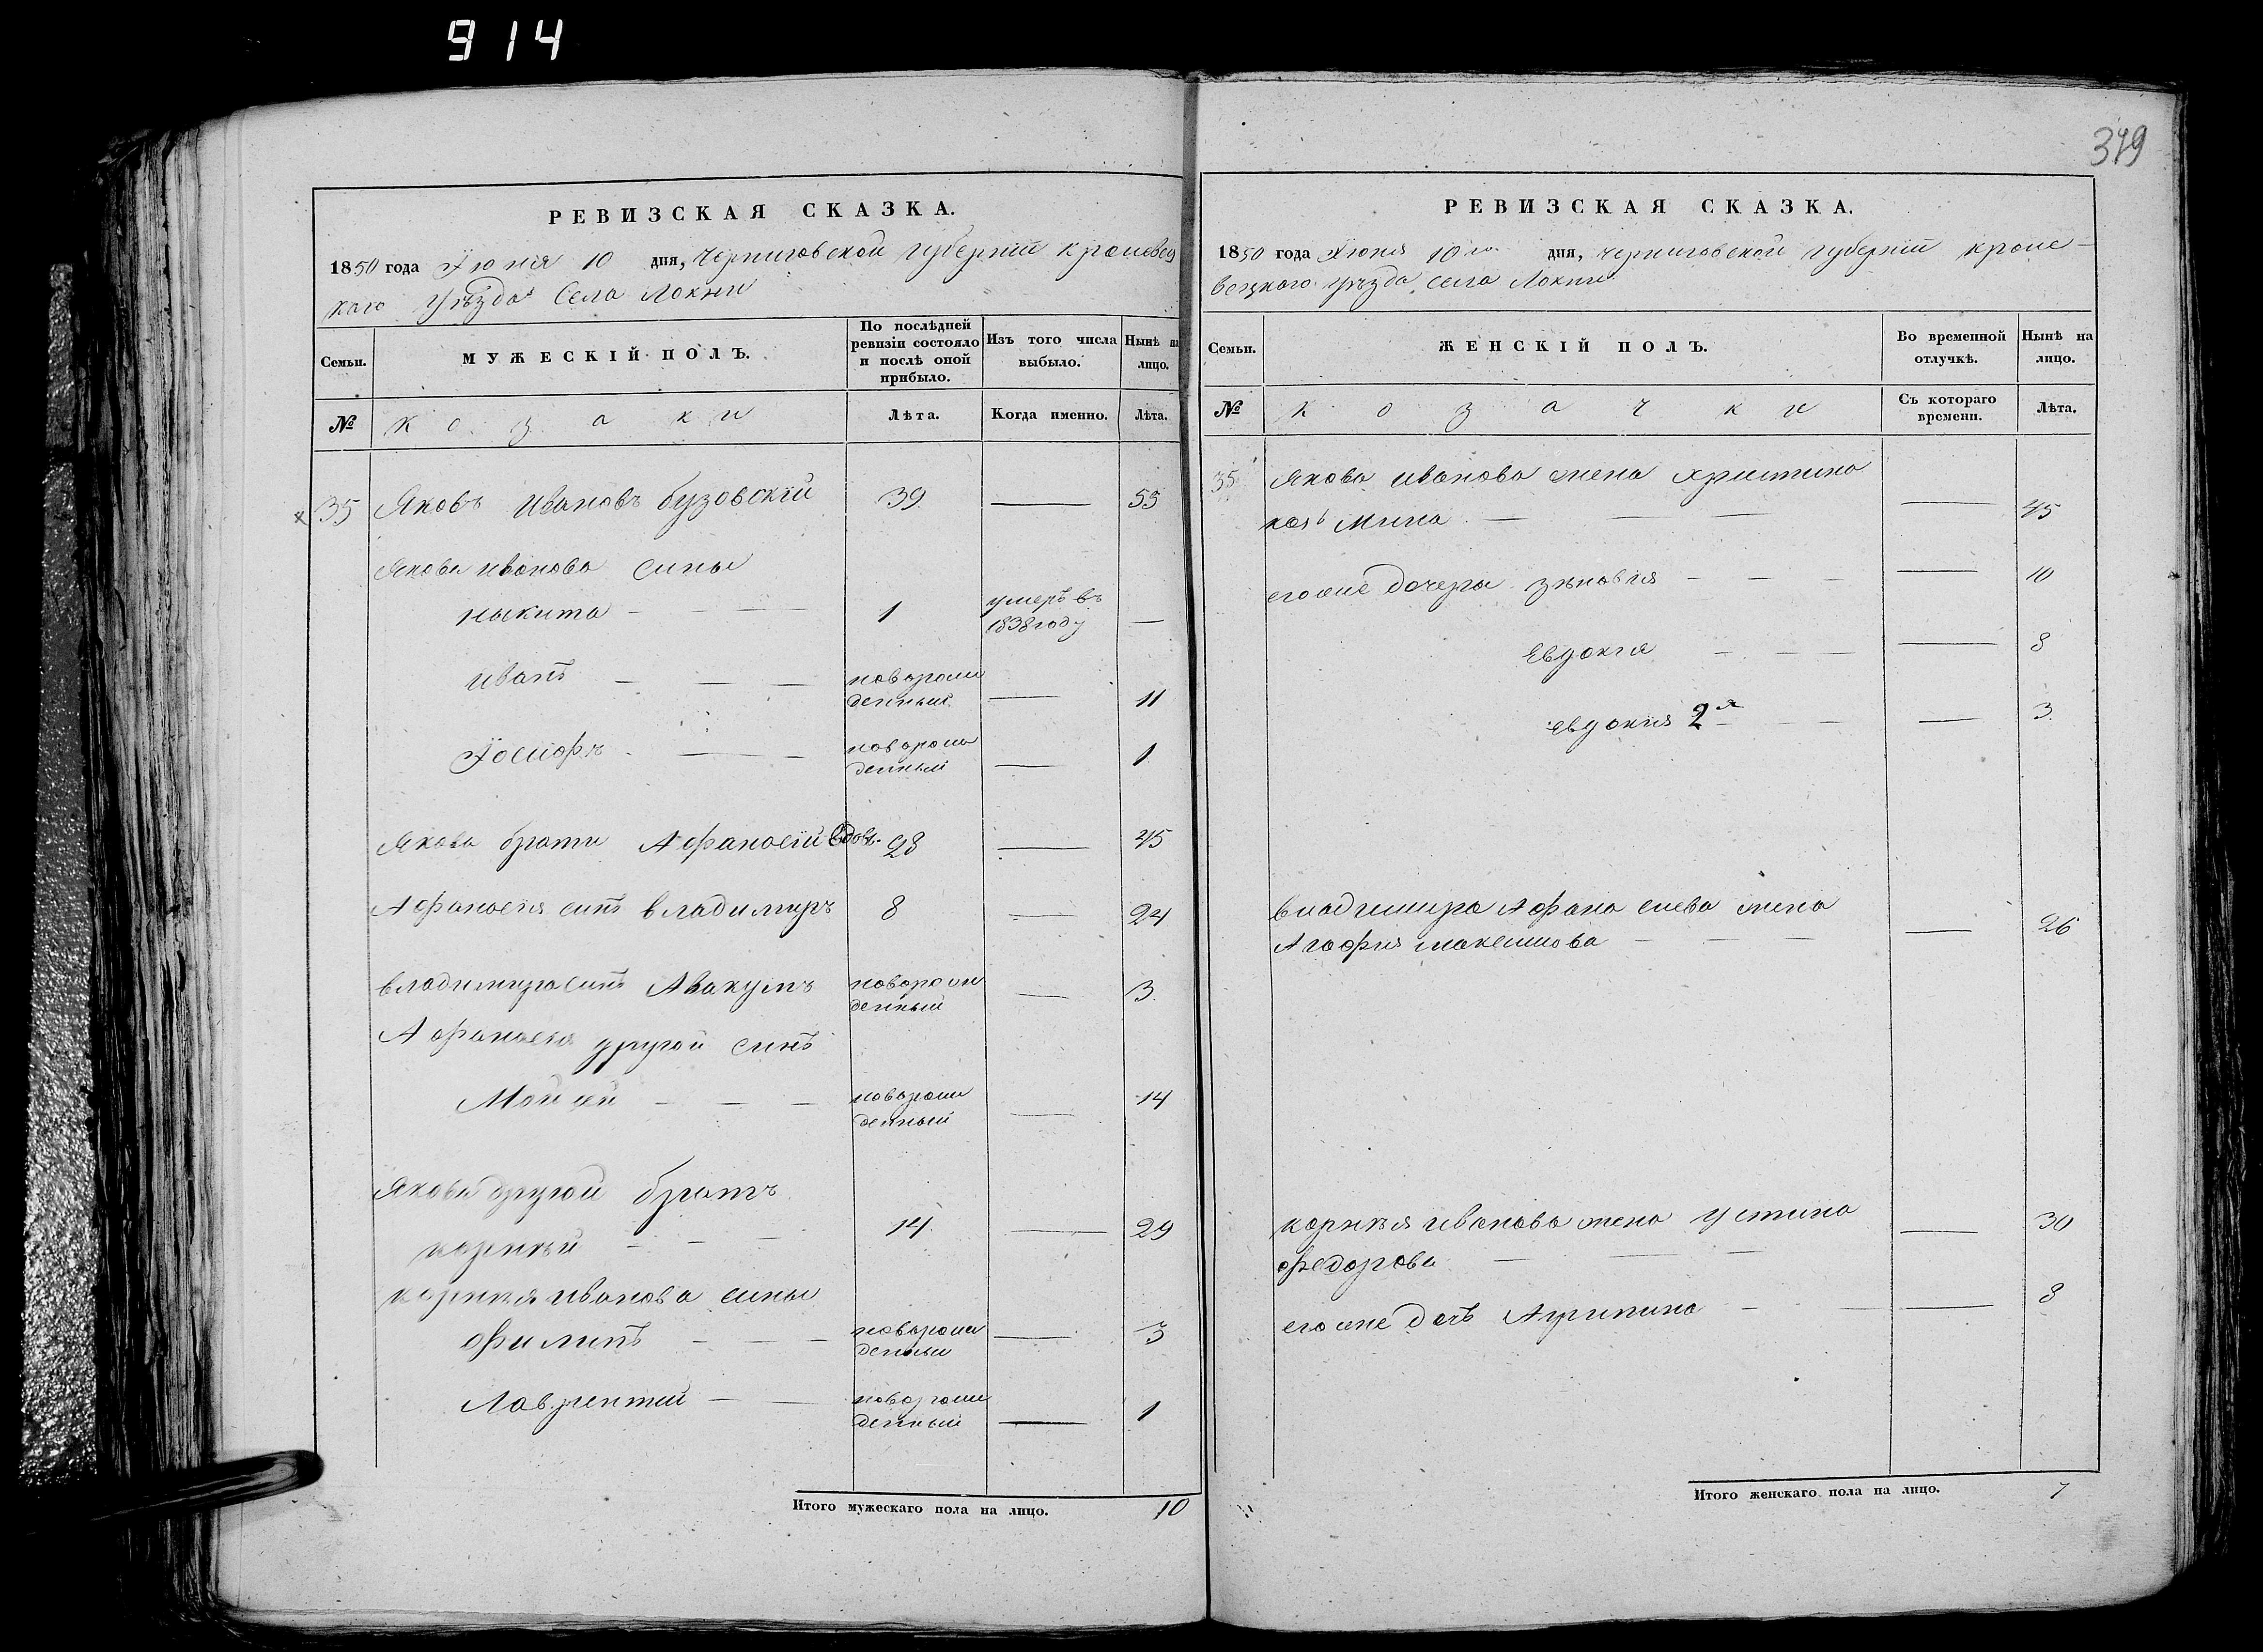 914
379
РЕВИЗСКАЯ СКАЗКА.
1850 года Іюня 10 дня, Черниговской губерніи Кролевец
каго Уѣзда Села Локни
Семьи.
МУЖЕСКІЙ ПОЛЪ.
По послѣдней ревизіи состояло и послѣ оной прибыло.
Изъ того числа выбыло.
Нынѣ на лицо.
№
Козаки
Лѣта.
Когда именно.
Лѣта.
35 Яковъ Ивановъ бузовскій 39 — 55
Якова Иванова сины
Никита — 1 умеръ въ 1838 году —
Иванъ — новорожденный — 11
Іосифъ — новорожденный — 1
Якова братъ Афанасій вдовъ. 28 — 45
Афанасія синъ владимиръ 8 — 24
владимира синъ Авакумъ новорожденный — 3
Афанасія другой синъ
Мойсей — новорожденный — 14
Якова другой братъ
корнѣй — 14 — 29
корнѣя Иванова сины
Филипъ — новорожденный — 3
Лаврентій — новорожденный — 1
Итого мужескаго пола на лицо. 10
РЕВИЗСКАЯ СКАЗКА.
1850 года Іюня 10го дня, Черниговской губерніи кроле-
вецкаго уѣзда села Локни
Семьи.
ЖЕНСКІЙ ПОЛЪ.
Во временной отлучкѣ.
Нынѣ на лицо.
№
козачки
Съ котораго времени.
Лѣта.
35 Якова Иванова жена христина
— 45
егоже дочери зѣновія — 10
Евдокія — 8
евдокія 2я — 3
владимира Афанасиева жена
Агафия максимова — 26
корнѣя иванова жена устина
федорова — 30
егоже дочъ Агрипина — 8
Итого женскаго пола на лицо. 7